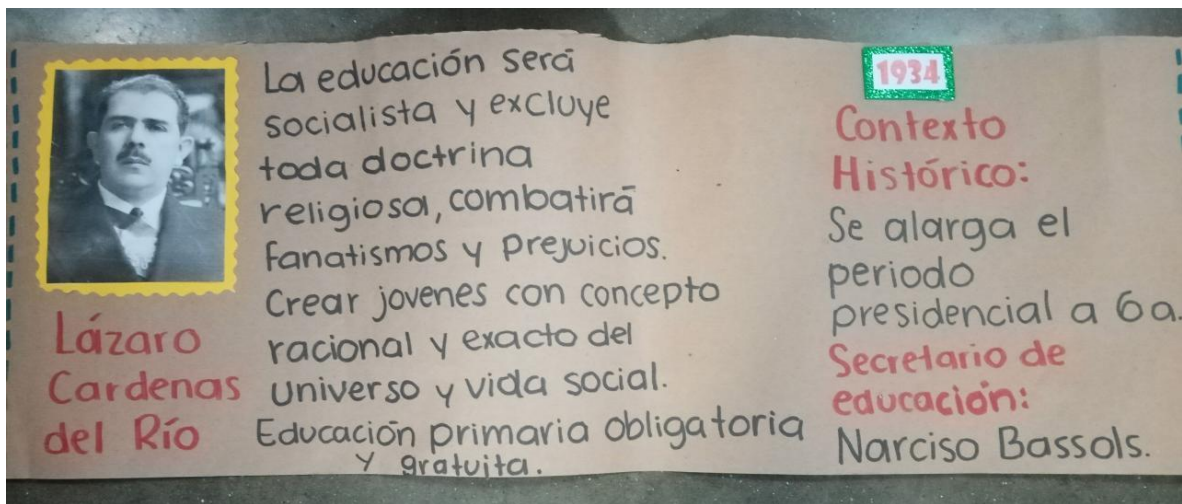 Lázaro
Cardenas
del Río
La educación será
socialista y excluye
toda doctrina
religiosa, combatirá
fanatismos y prejuicios.
Crear jovenes con concepto
racional y exacto del
universo y vida social.
Educación primaria obligatoria
y gratuita.
1934
Contexto
Histórico:
Se alarga el
periodo
presidencial a 6a.
Secretario de
educación:
Narciso Bassols.